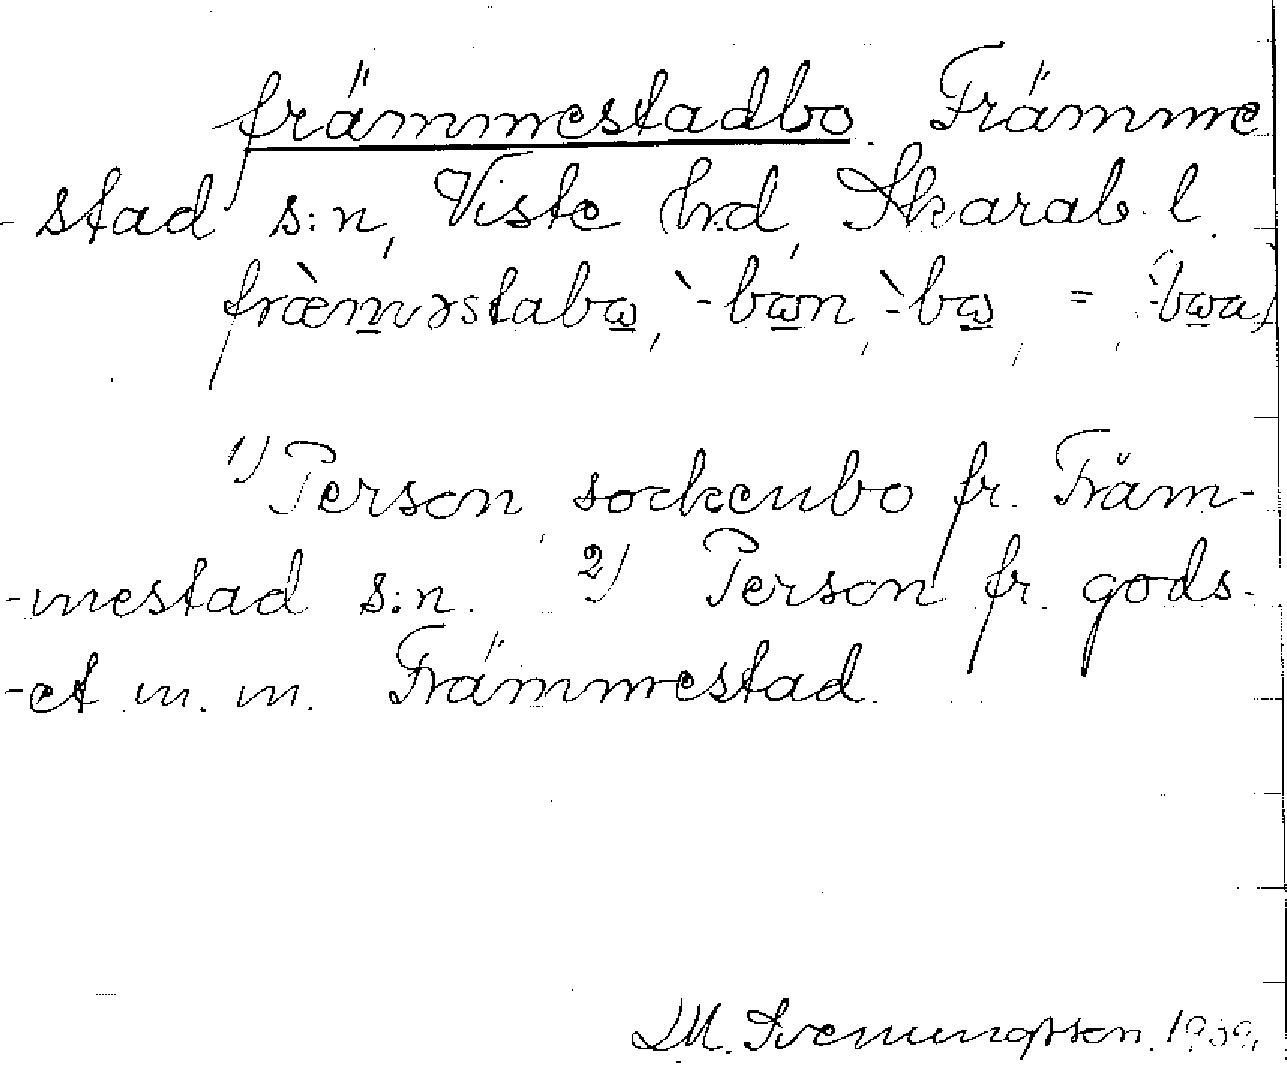 främmestadbo. Främme
-stad s:n, Viste hrd, Skarab. l.
fràməstabω, `-bωn, `-bω, = , `-bωa,
1) Person, sockenbo fr. Främ-
-mestad s:n. 2) Person fr. gods-
-et m. m. Främmestad.
L.M. Svenungsson. 1939.